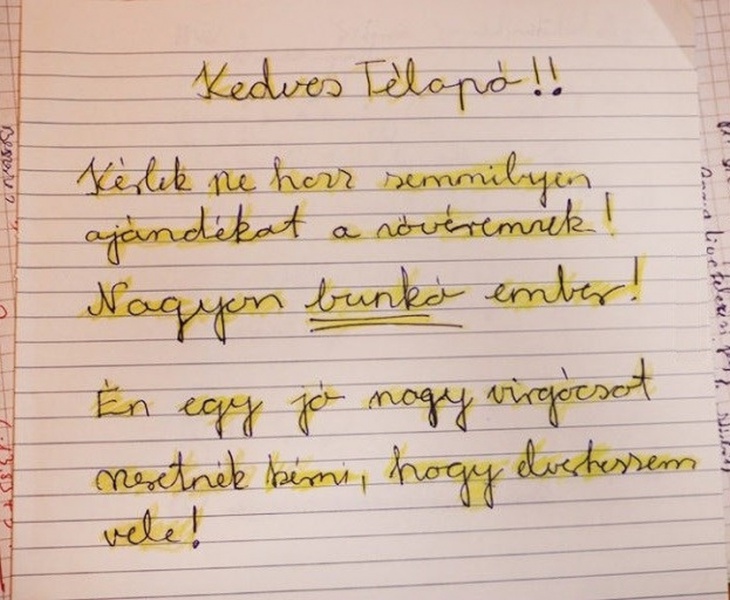 Kedves Télapó!!
Kérlek ne hozz semmilyen
ajándékot a nővéremnek!
Nagyon bunkó ember!
Én egy jó nagy virgácsot
szeretnék kérni, hogy elverhessem
vele!